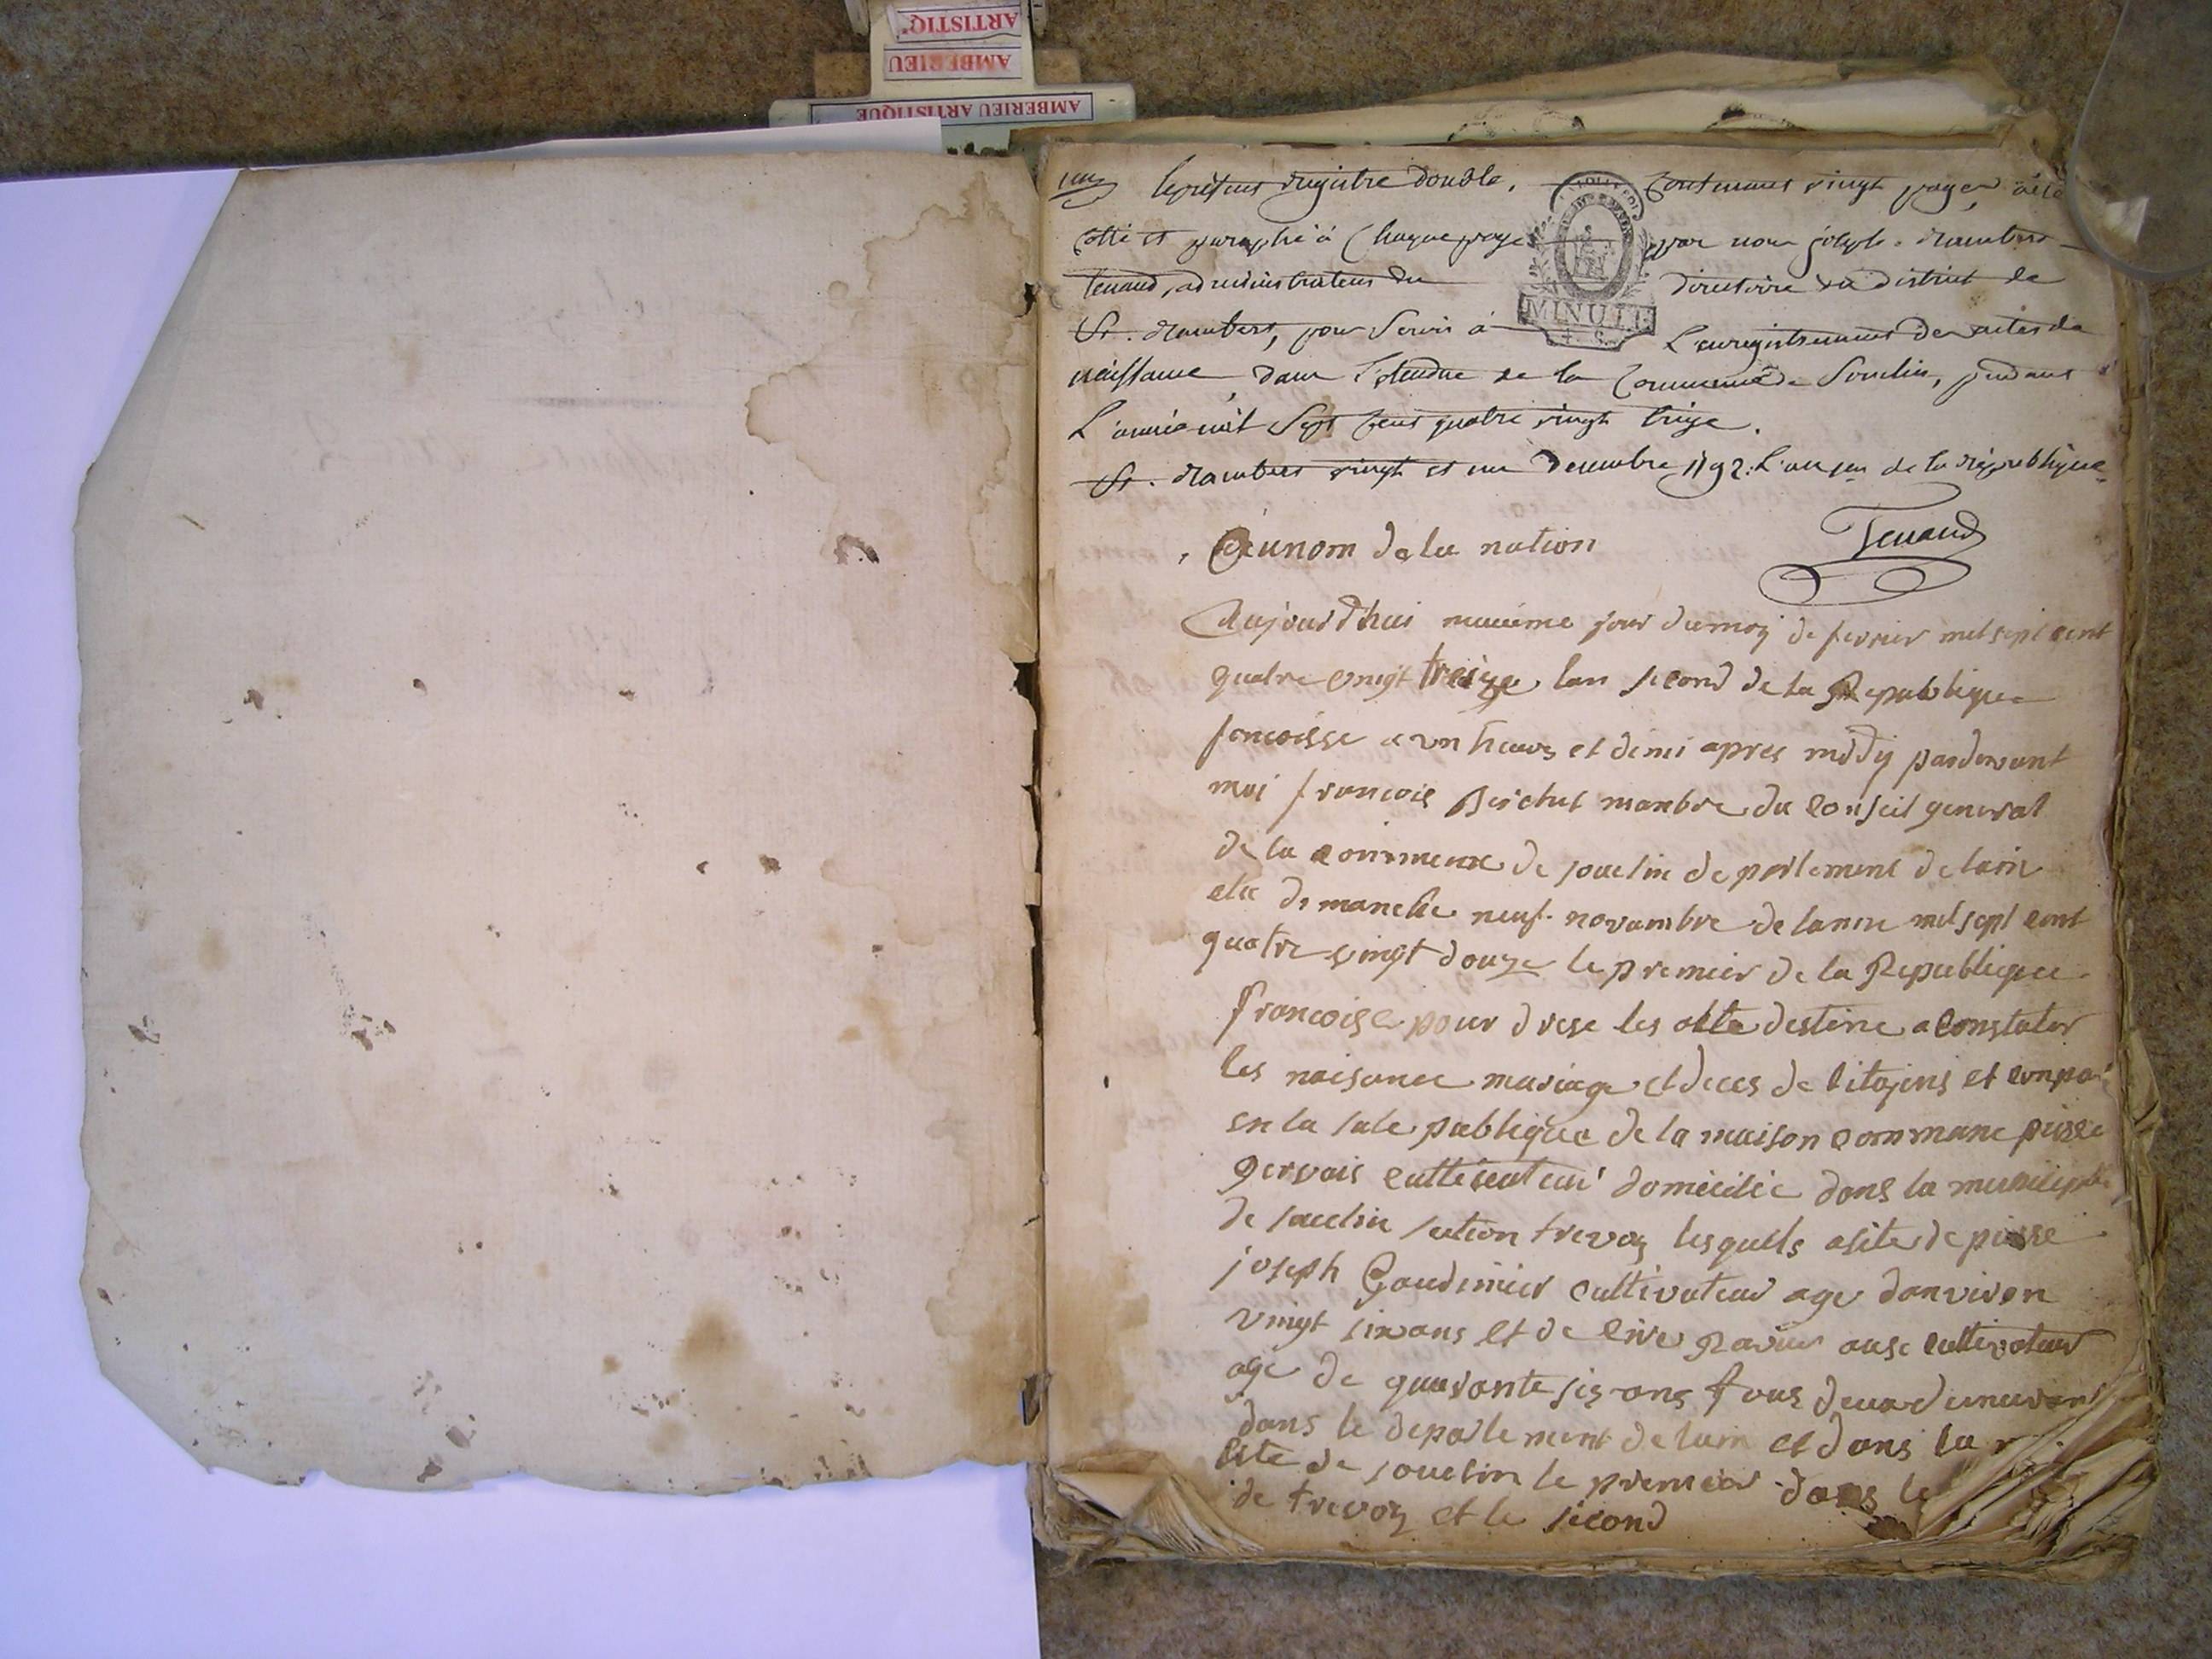 ARTISTIQ'
AMBERIEU
AMBERIEU ARTISTIQUE
le présent registre double, contenant vingt pages, a été
cotté et paraphé à chaque page par nous joseph-Rambert
tenand, administrateur du directoire du district de
St. Rambert, pour servir à L'enregistrement des actes de
naissance, dans l'étendue de la commune de Souclin, pendant
L'année mil sept cent quatre vingt treize.
St. Rambert vingt et un Decembre 1792. L'an 1er de la république
Tenand
MINUTE
Au nom de la nation
Aujourd'huis neuvieme jour du moy de fevrier mil sept cent
quatre vingt treize lan second de la Republique
francoisse a un heure et demi apres middy pardevant
moi francois manbre du conseil general
de la commune de souclin departement de lain
elu dimanche neuf novambre de lanne mil sept cent
quatre vingt douze le premier de la Republique
francoise pour drese les atte destine a constater
les naisance mariage et deces de citojens et conpar
en la sale publique de la maison commune pierre
gervais cultivateur domicilie dans la municipa
de souclin section trevoy lesquels asiste de pierre
joseph Goudimier cultivateur age danviron
vingt six ans et de cultivateur
age de quarante sis ans tous deux demeurant
dans le departement de lain et dans la
lite de souclin le premier dans le
de trevoy et le second